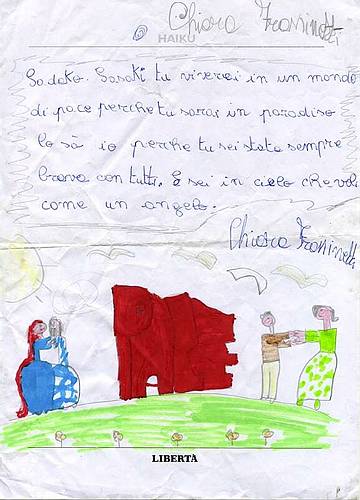 Chiara Frassinetti
HAIKU
Sadako. Sasaki tu viverai in un mondo
di pace perche tu sarai in paradiso
lo sò io perche tu sei stata sempre
brava con tutti. E sei in cielo che voli
come un angelo.
Chiara Frassinetti
LIBERTÀ